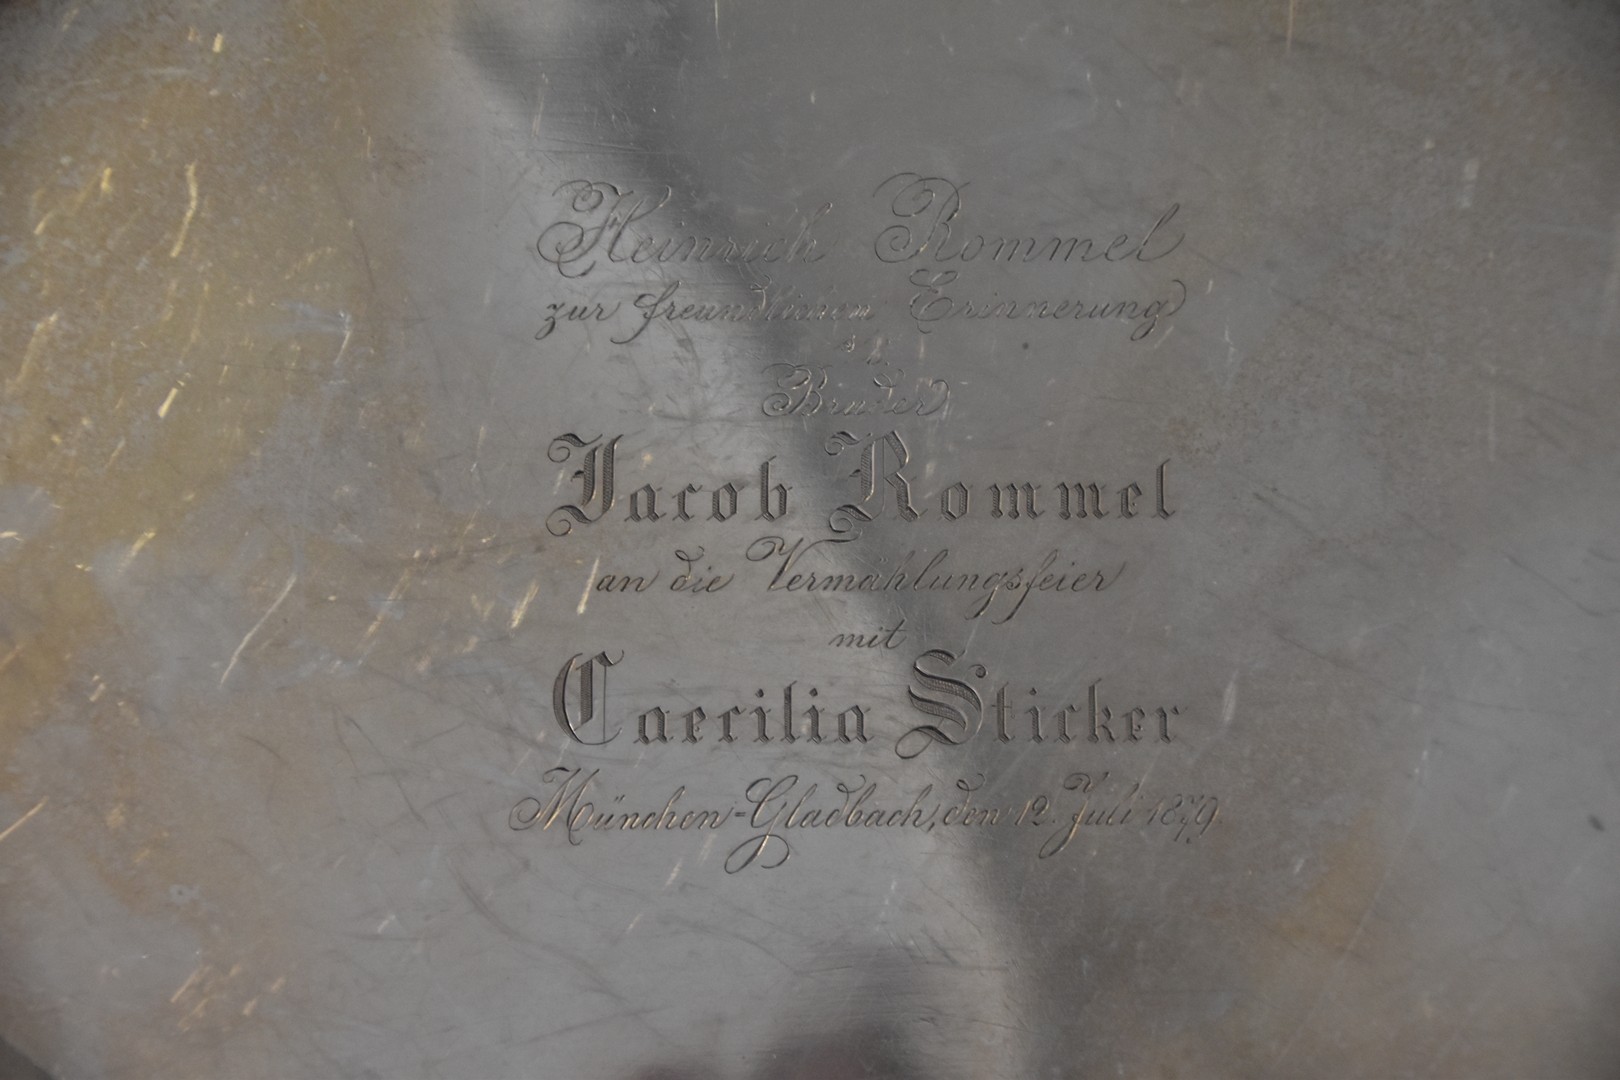 Heinrich Rommel
zur freundlichen Erinnerung
s. l.
Bruder
Jacob Rommel
an die Vermählungsfeier
mit
Caecilia Sticker
München-Gladbach, den 12. Juli 1879.